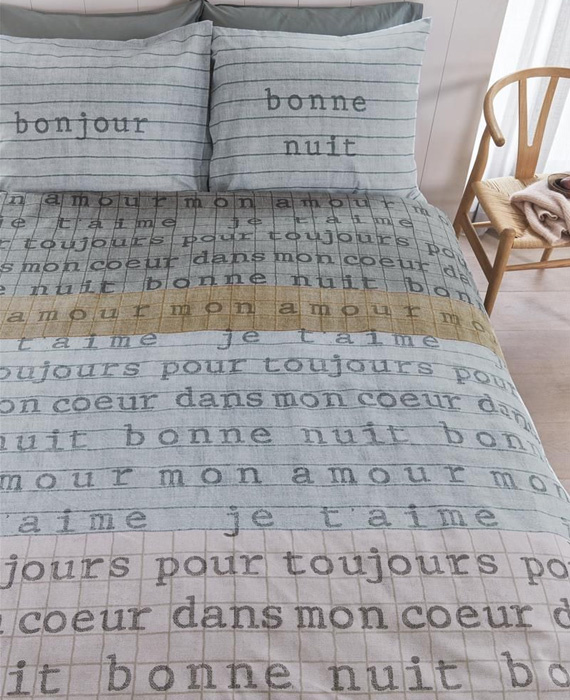 bonjour
bonne
nuit
amour mon amour
je t'aime je t'aime
toujours pour toujours pour
mon coeur dans mon coeur
bonne nuit bonne nuit bon
amour mon amour
t'aime je t'aime
toujours pour toujours pour
coeur dans mon coeur dans
nuit bonne nuit
mour mon amour mon
aime je t'aime
jours pour toujours
coeur dans mon coeur
bonne nuit